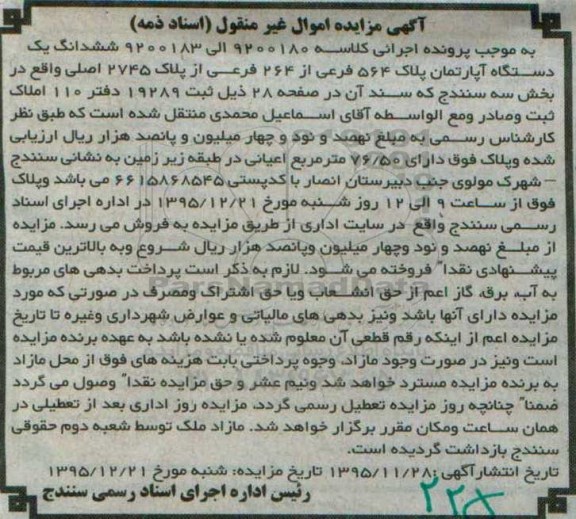 آگهی مزایده اموال غیر منقول (اسناد ذمه)
به موجب پرونده اجرائی کلاسه ۹۲۰۰۱۸۰ الی ۹۲۰۰۱۸۳ ششدانگ یک
دستگاه آپارتمان پلاک ۵۶۴ فرعی از ۲۶۴ فرعی از پلاک ۲۷۴۵ اصلی واقع در
بخش سه سنندج که سند آن در صفحه ۲۸ ذیل ثبت ۱۹۲۸۹ دفتر ۱۱۰ املاک
ثبت وصادر ومع الواسطه آقای اسماعیل محمدی منتقل شده است که طبق نظر
کارشناس رسمی به مبلغ نهصد و نود و چهار میلیون و پانصد هزار ریال ارزیابی
شده وپلاک فوق دارای ۷۶/۵۰ مترمربع اعیانی در طبقه زیر زمین به نشانی سنندج
– شهرک مولوی جنب دبیرستان انصار با کدپستی ۶۶۱۵۸۶۸۵۴۵ می باشد وپلاک
فوق از ساعت ۹ الی ۱۲ روز شنبه مورخ ۱۳۹۵/۱۲/۲۱ در اداره اجرای اسناد
رسمی سنندج واقع در سایت اداری از طریق مزایده به فروش می رسد. مزایده
از مبلغ نهصد و نود وچهار میلیون وپانصد هزار ریال شروع وبه بالاترین قیمت
پیشنهادی نقدا" فروخته می شود. لازم به ذکر است پرداخت بدهی های مربوط
به آب، برق، گاز اعم از حق انشعاب ویا حق اشتراک ومصرف در صورتی که مورد
مزایده دارای آنها باشد ونیز بدهی های مالیاتی و عوارض شهرداری وغیره تا تاریخ
مزایده اعم از اینکه رقم قطعی آن معلوم شده یا نشده باشد به عهده برنده مزایده
است ونیز در صورت وجود مازاد، وجوه پرداختی بابت هزینه های فوق از محل مازاد
به برنده مزایده مسترد خواهد شد ونیم عشر و حق مزایده نقدا" وصول می گردد
ضمنا" چنانچه روز مزایده تعطیل رسمی گردد، مزایده روز اداری بعد از تعطیلی در
همان ساعت ومکان مقرر برگزار خواهد شد. مازاد ملک توسط شعبه دوم حقوقی
سنندج بازداشت گردیده است.
تاریخ انتشارآگهی :۱۳۹۵/۱۱/۲۸ تاریخ مزایده: شنبه مورخ ۱۳۹۵/۱۲/۲۱
رئیس اداره اجرای اسناد رسمی سنندج